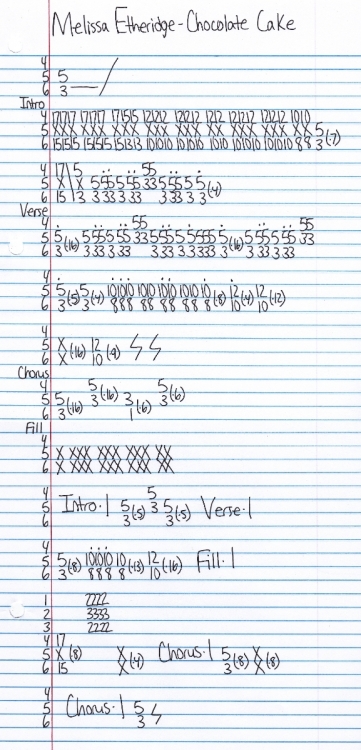 Melissa Etheridge - Chocolate Cake
4
5 5
6 3
Intro
4 1717 1717 171515 121212 1212 1212 121212 121212 1010
5 XXX XX XXX XXX XX XX XXX XXX XX 5
6 151515 151515 151313 101010 1010 1010 101010 101010 88 3(7)
4 17 5 55
5 X X 555555 33 55555 5
6 15 3 3333 33 333 3(4)
Verse
4 55 55
5 5(16)
6 3
4
5 5(5)5(4) 1010 1010 1010 1010 10(8) 12(4)12(12)
6 3 3 888 88 88 888 8 10 10
4
5 X(16) 12(4)
6 X 10
Chorus
4 5(16) 5(6)
5 5(16) 3 3(6) 3
6 3 1
Fill
4
5 X XXX XXX XXX XX
6 X XXX XXX XXX XX
4 5
5 Intro·1 5(5) 3 5(5) Verse·1
6 3 3
4
5 5(8) 10101010(13) 12(16) Fill·1
6 3 888 8 10
1 2222
2 3333
3 2222
4 17
5 X(8) X(4) Chorus·1 5(8) X(8)
6 15 X 3 X
4
5 Chorus·1 5
6 3